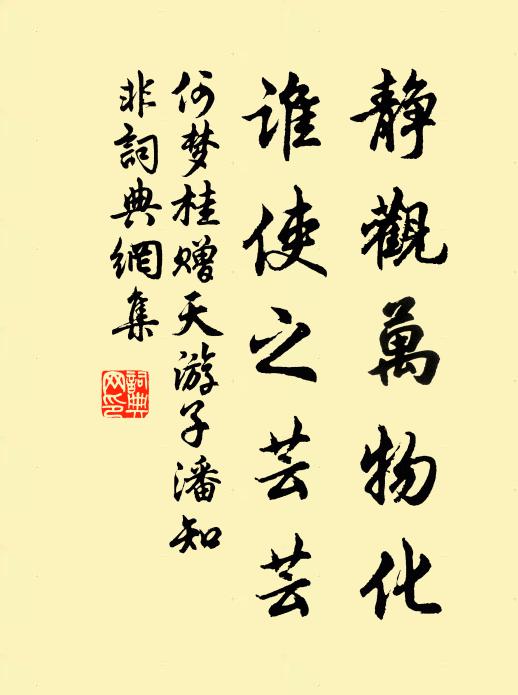 静觀萬物化
谁使之芸芸
何梦桂赠天游子潘知
非詞典網集
詞典
网印